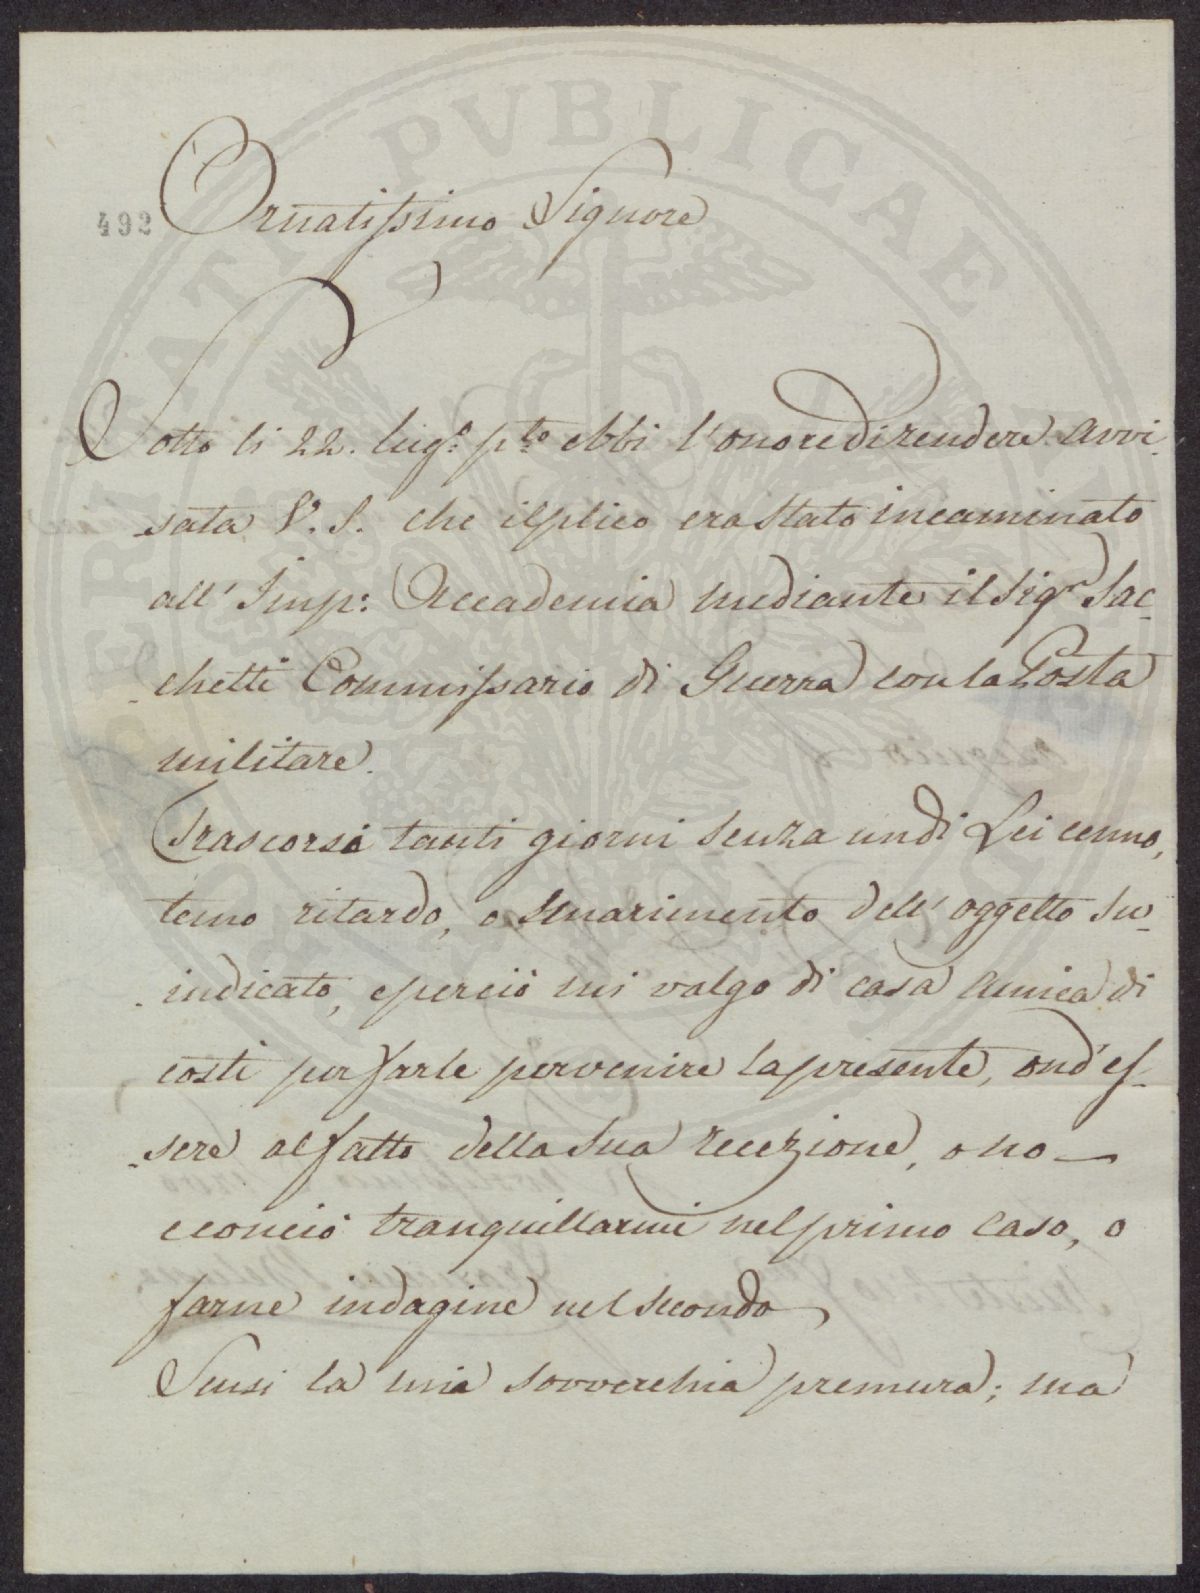 PERICLITATI PVBLICAE
492 Ornatissimo Signore
Sotto li 22. lug.o p.to ebbi l'onore di rendere avvi-
sata V. S. che il plico era stato incaminato
all' Imp: Accademia mediante il Sig.r Sac-
chetti Commissario di Guerra con la Posta
militare.
Trascorsi tanti giorni senza un di Lei cenno,
temo ritardo, o smarimento dell' oggetto su-
indicato, e perciò mi valgo di casa amica di
costi per farle pervenire la presente, ond' es-
sere al fatto della sua recezione, o no —
e conciò tranquillarmi nel primo caso, o
farne indagine nel secondo
Scusi la mia sovverchia premura; ma